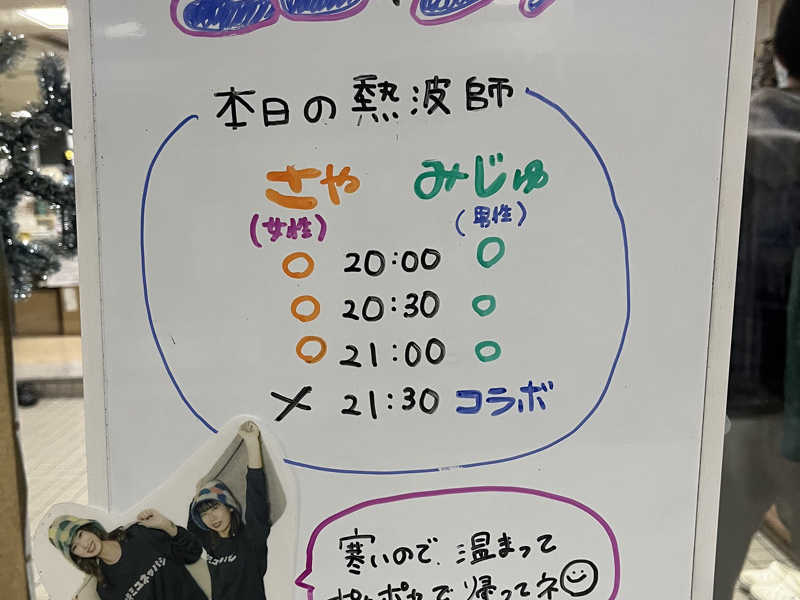 本日の熱波師
さや みじゅ
(女性) (男性)
○ 20:00 ○
○ 20:30 ○
○ 21:00 ○
× 21:30 コラボ
寒いので、温まって
ポカポカで帰ってネ